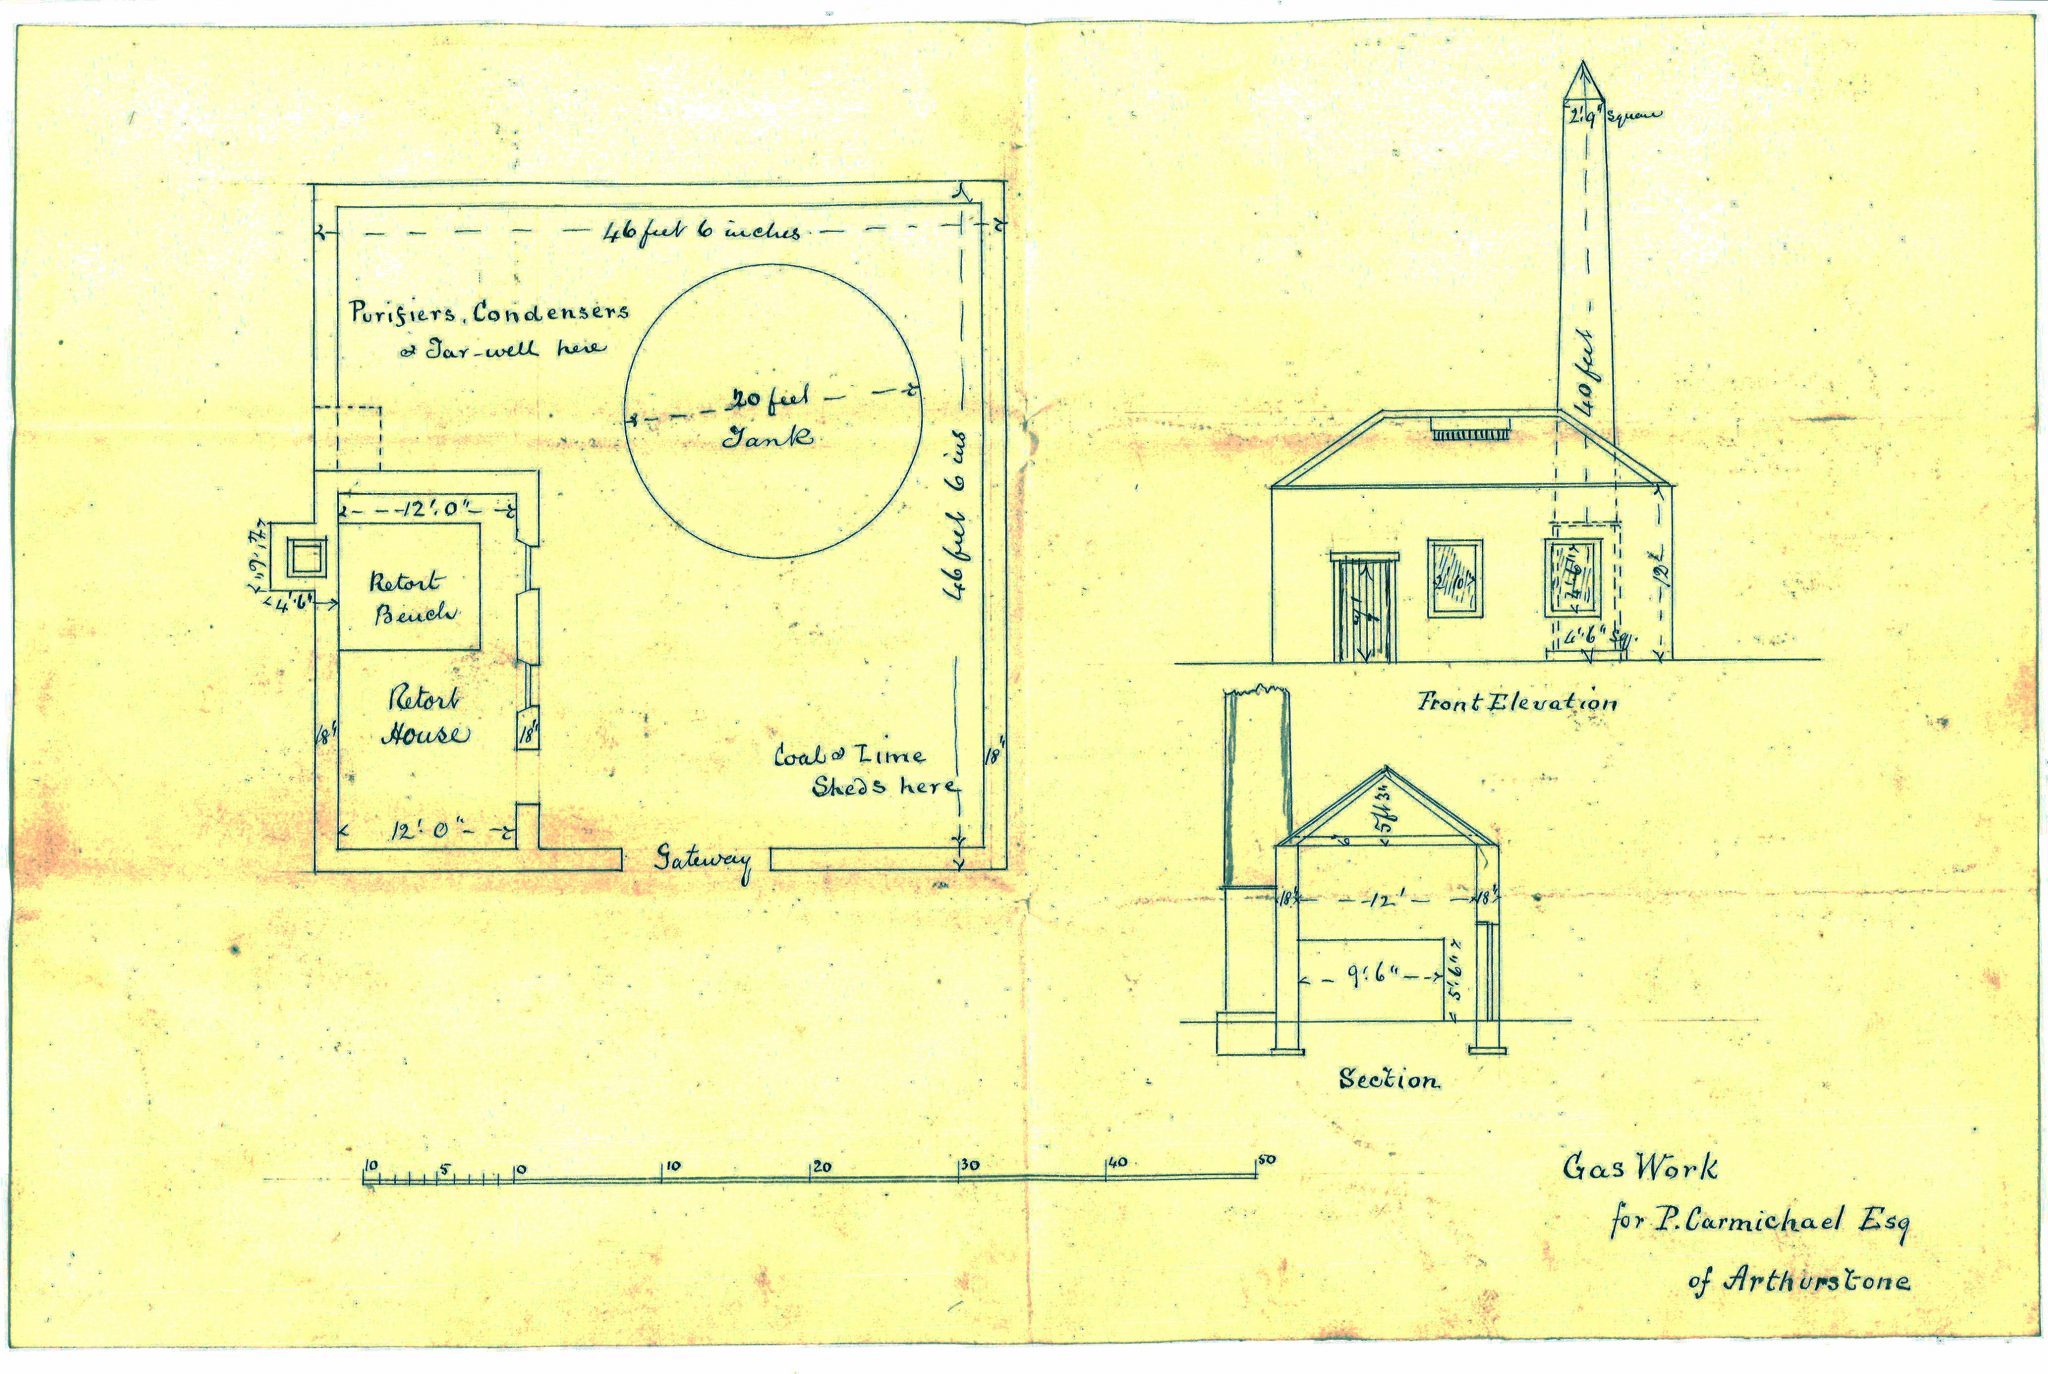 46 feet 6 inches
Purifiers, Condensers
& Tar-well here
20 feet
Tank
46 feet 6 ins
12'.0"
4'.6"
4'.6"
Retort
Bench
Retort
House
18"
18"
18"
Coal & Lime
Sheds here
12'.0"
Gateway
2'.9" Square
40 feet
12'
4'.6" Sq.
Front Elevation
5ft 3"
18"
12'
18"
9'.6"
5'.6"
Section
10 5 0 10 20 30 40 50
Gas Work
for P. Carmichael Esq
of Arthurstone